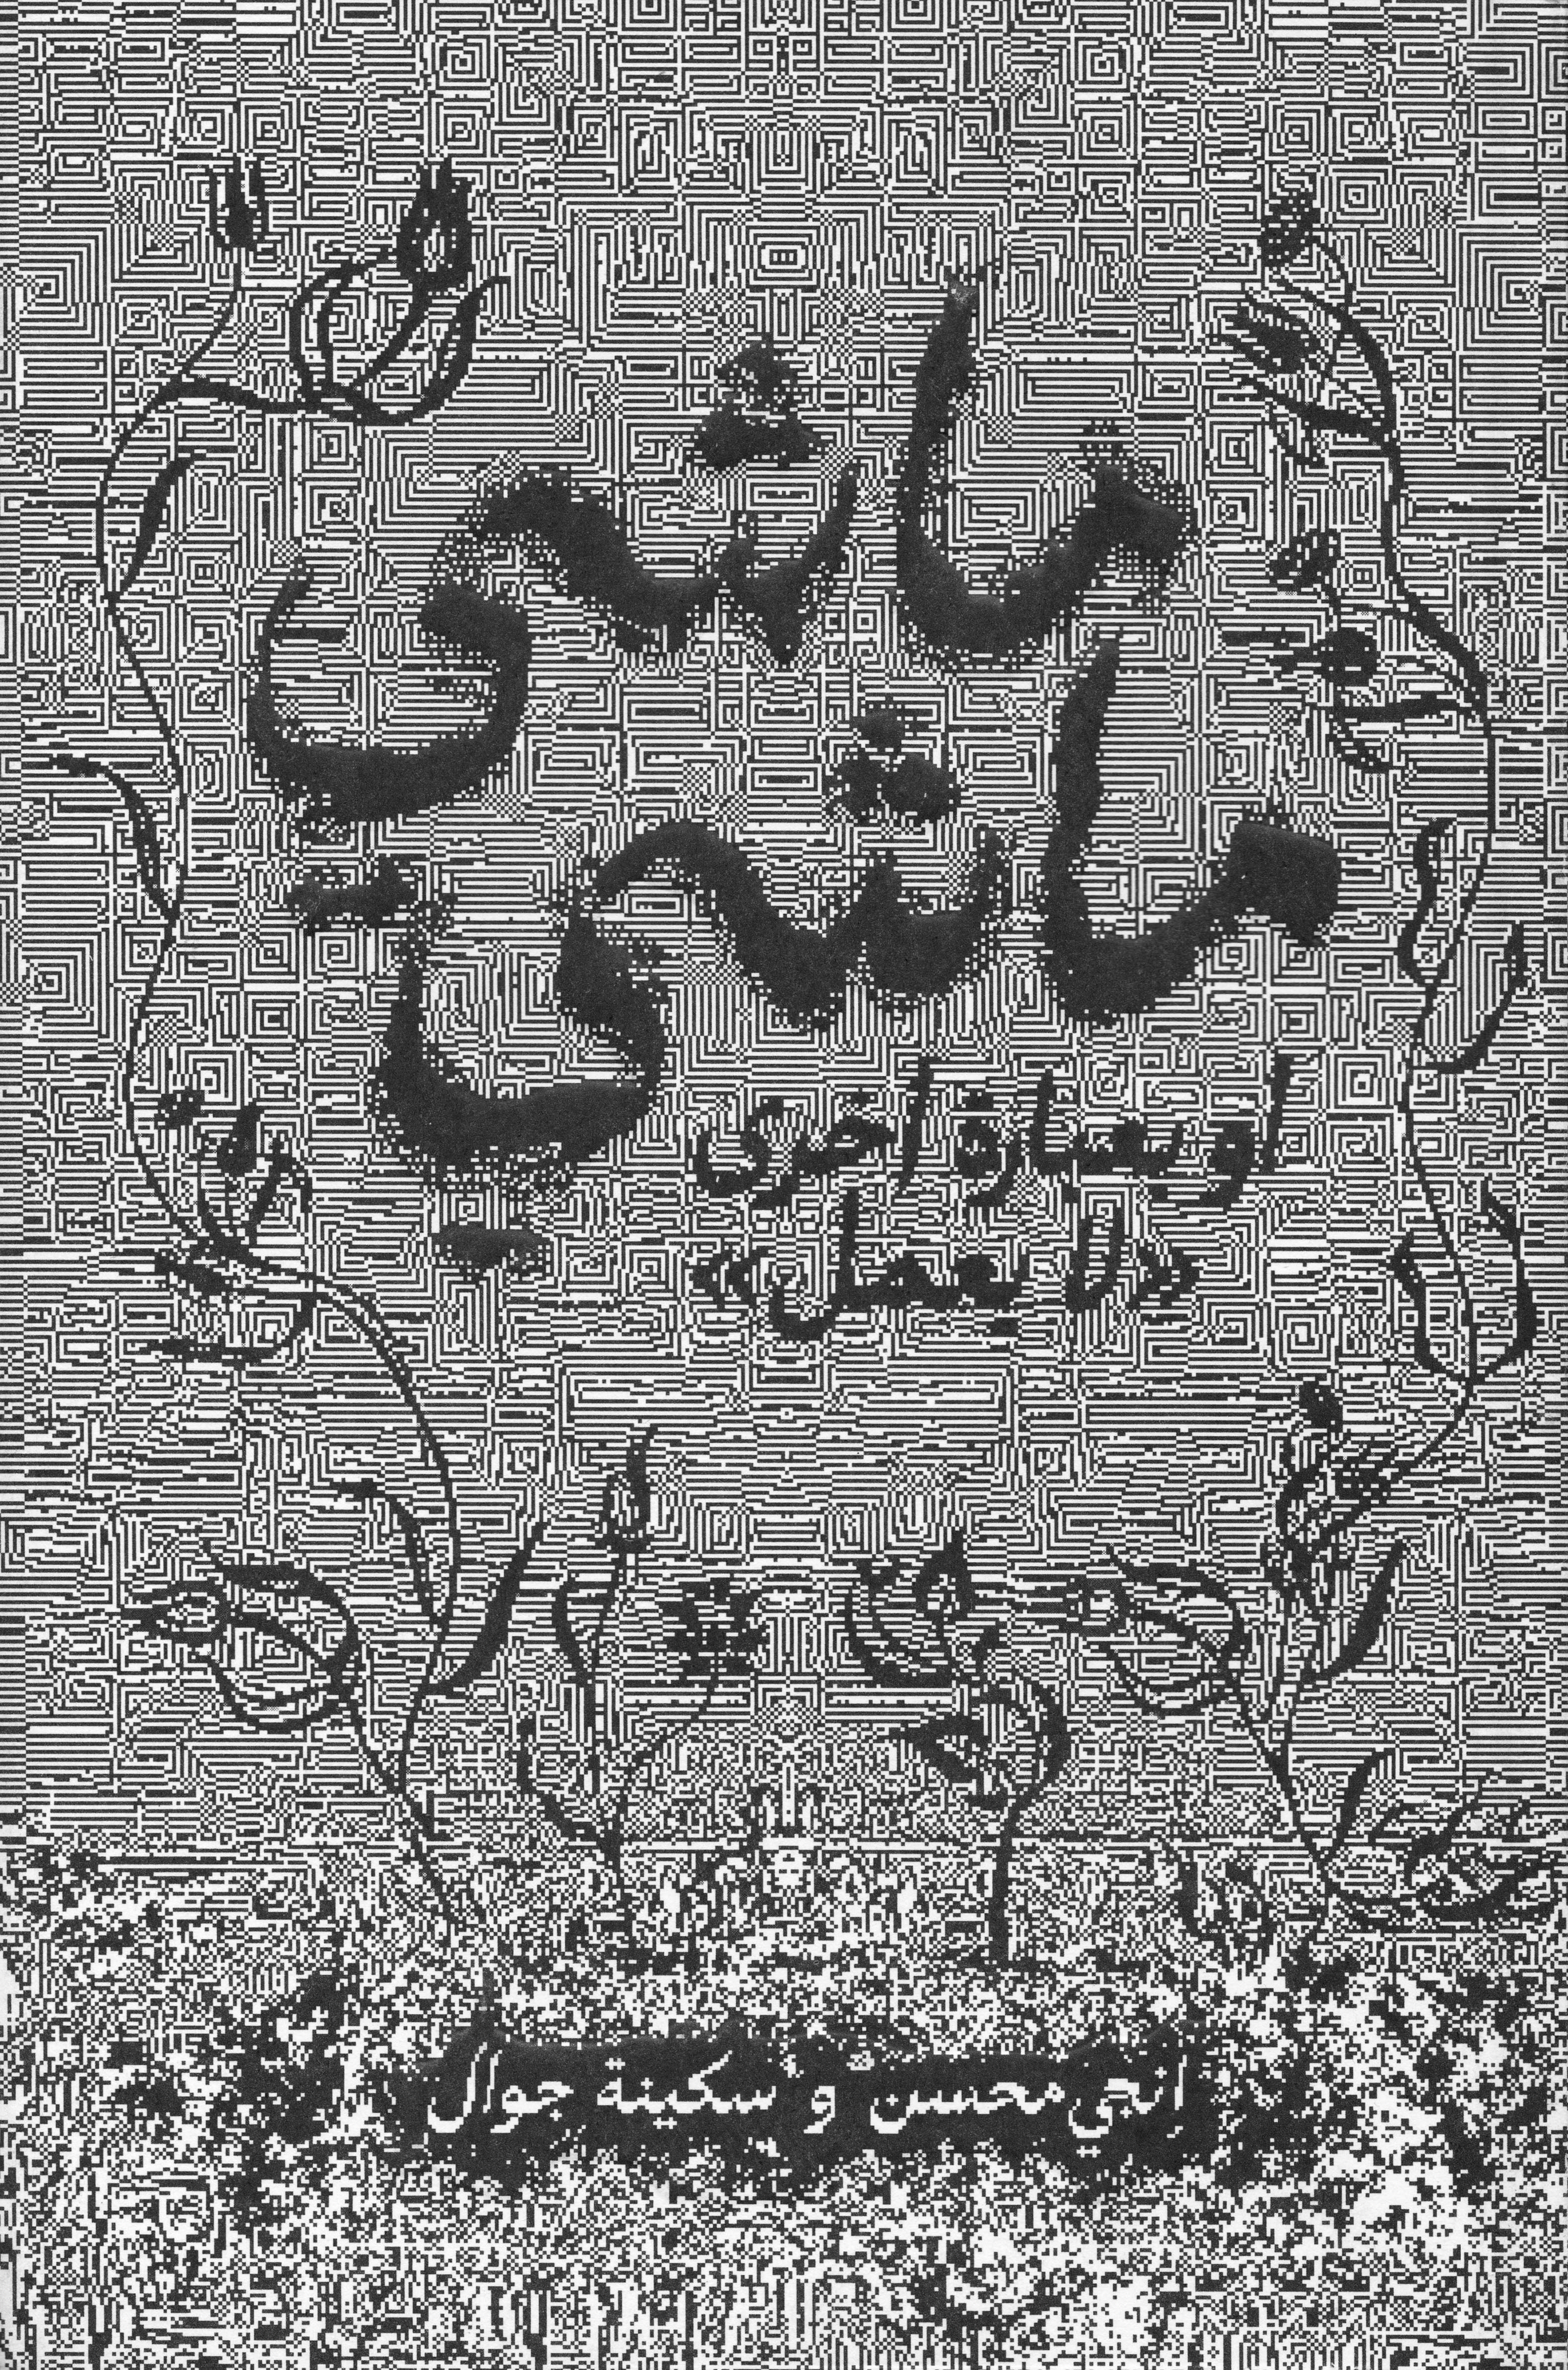 ماشي
ماشي
او بعبارة أخرى
«لا يعمل»
إنجي محسن و سكينة جوال